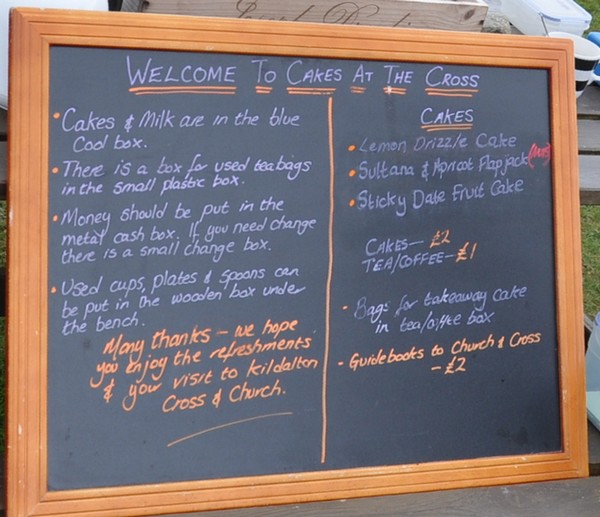 WELCOME TO CAKES AT THE CROSS
• Cakes & Milk are in the blue
Cool box.
• There is a box for used teabags
in the small plastic box.
• Money should be put in the
metal cash box. If you need change
there is a small change box.
• Used cups, plates & spoons can
be put in the wooden box under
the bench.
Many thanks – we hope
you enjoy the refreshments
& your visit to Kildalton
Cross & Church.
CAKES
• Lemon Drizzle Cake
• Sultana & Apricot Flapjack
• Sticky Date Fruit Cake
CAKES – £2
TEA/COFFEE – £1
• Bags for takeaway cake
in tea/coffee box
- Guidebooks to Church & Cross
- £2